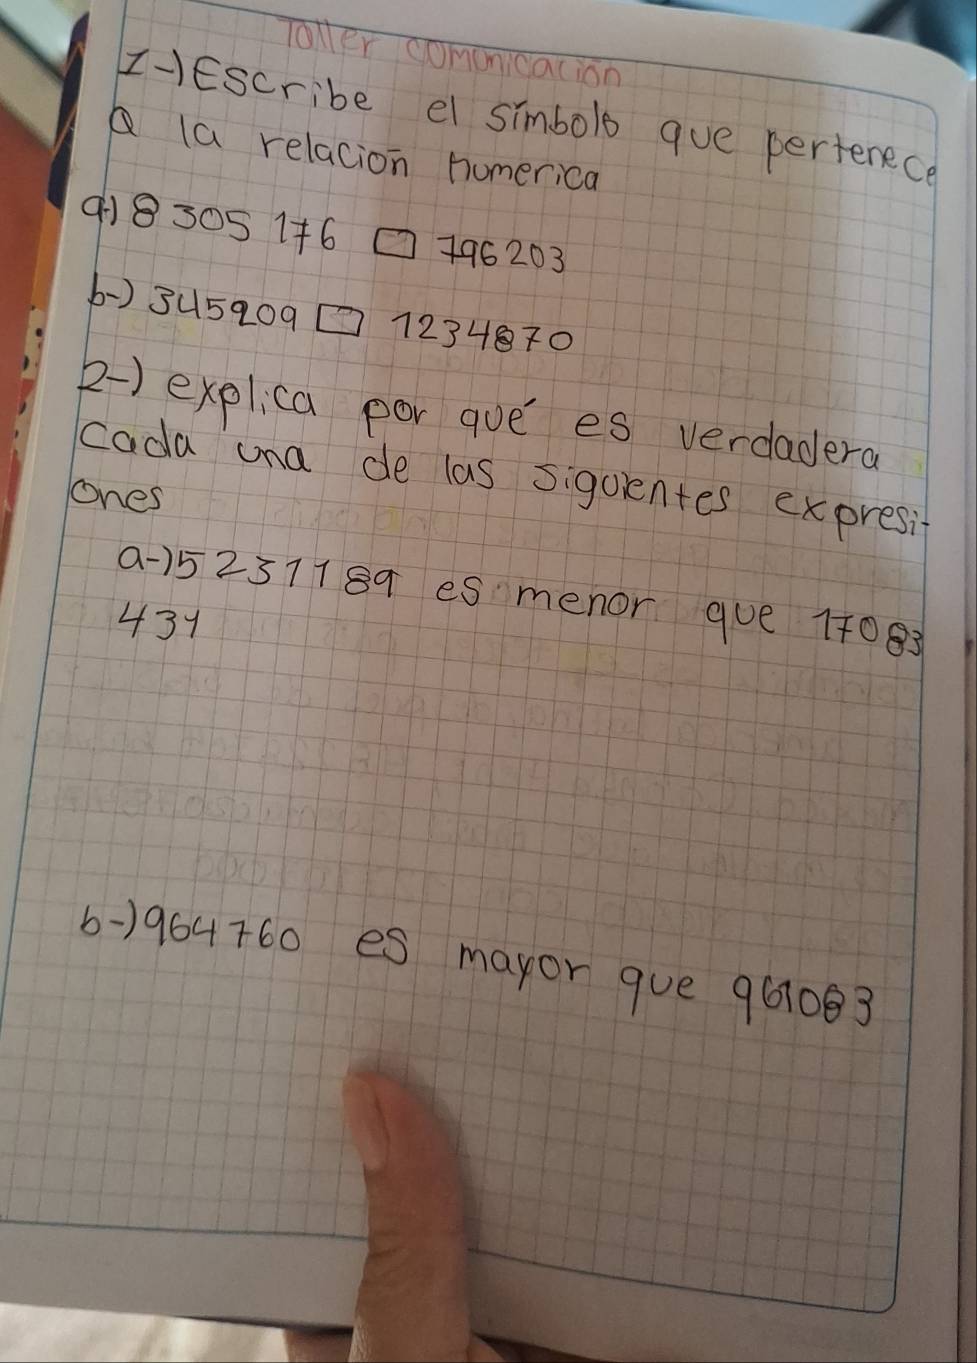 Taller comunicacion
1-) Escribe el simbolo que pertenece
a la relacion numerica
a-) 8305176 □ 796203
b-) 345909 □ 1234870
2-) explica por qué es verdadera
cada una de las siguientes expresi-
ones
a-) 5231189 es menor que 17083
431
b-) 964760 es mayor que 961083